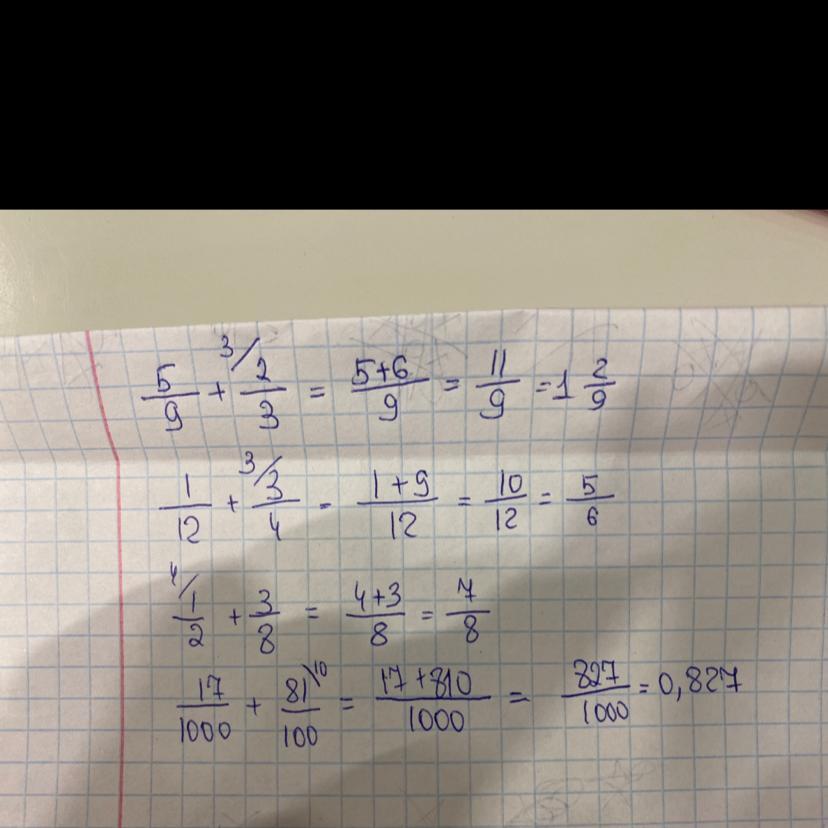 5/9 + ³⧸ 2/3 = (5+6)/9 = 11/9 = 1 2/9
1/12 + ³⧸ 3/4 - (1+9)/12 = 10/12 = 5/6
⁴⧸ 1/2 + 3/8 = (4+3)/8 = 7/8
17/1000 + 81\¹⁰/100 = (17+810)/1000 = 827/1000 = 0,827